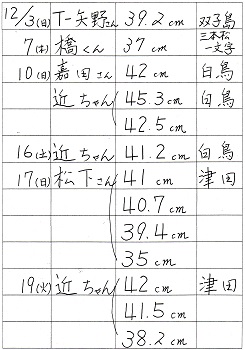 12/3(日) T-矢野さん 39.2cm 双子島
7(木) 橋くん 37cm 三本松一文字
10(日) 嘉田さん 42cm 白鳥
近ちゃん 45.3cm 白鳥
42.5cm
16(土) 近ちゃん 41.2cm 白鳥
17(日) 松下さん 41cm 津田
40.7cm
39.4cm
35cm
19(火) 近ちゃん 42cm 津田
41.5cm
38.2cm